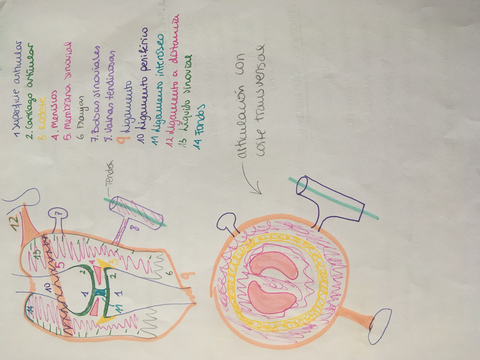 1 Superficie articular
2 Cartílago articular
3
4 Meniscos
5 Membrana sinovial
6
7 Bolsas sinoviales
8 Vainas tendinosas
9 Ligamento
10 Ligamento periférico
11 Ligamento interóseo
12 Ligamento a distancia
13 Líquido sinovial
14 Tendós
articulación con
corte transversal
Tendós
12
7
8
13
5
10
14
4
2
2
1
1
11
6
9